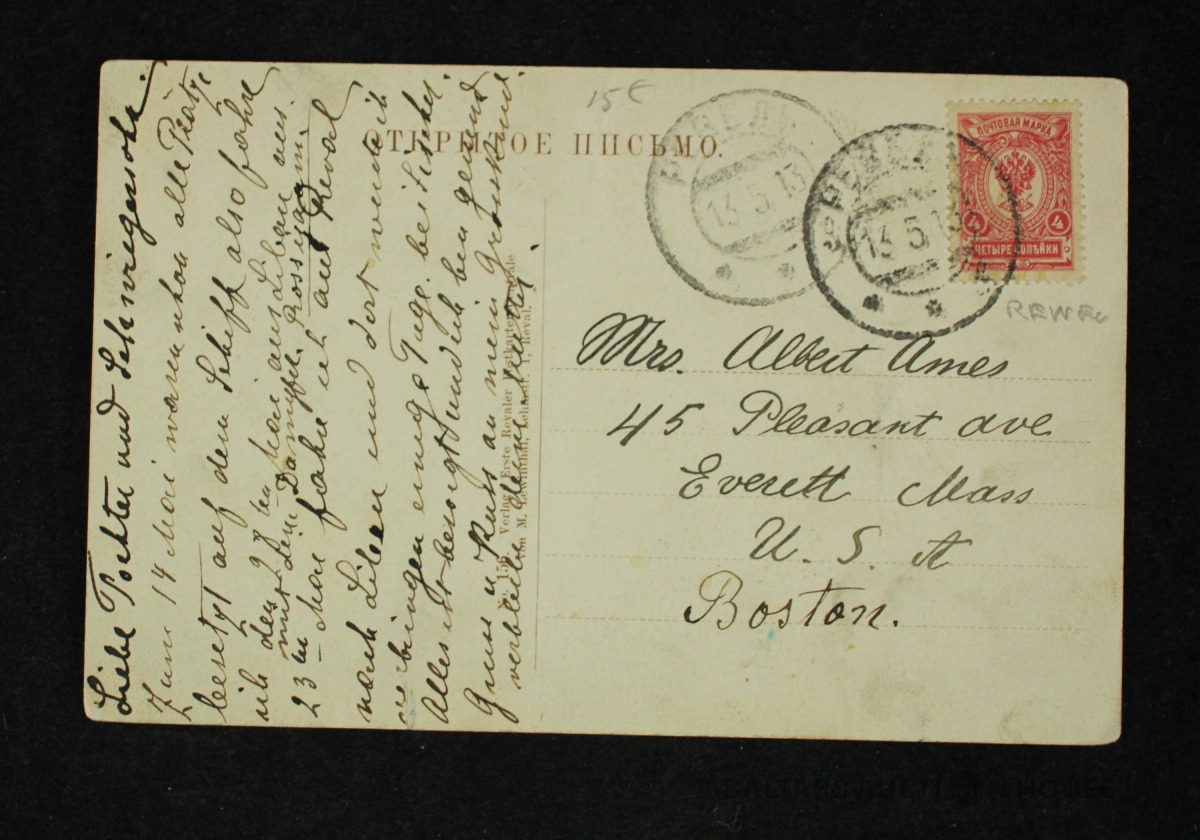 Liebe Tochter und Schwiegersohn.
Zum 14 Mai waren schon alle Plätze
besetzt auf dem Schiff also fahre
ich den 27ten Mai aus Libau aus.
mit dem Dampfer Rossija am
23ten Mai fahre ich aus Reval
nach Libau und dort werde ich
verbringen einige Tage bei
Alles ist besorgt und ich bin gesund
Gruss u Kuss an mein Grosskind
verbleibe
15 €
ОТКРЫТОЕ ПИСЬМО.
РЕВЕЛЬ
13 5 13
РЕВЕЛЬ
13 5 13
ПОЧТОВАЯ МАРКА
4
4
ЧЕТЫРЕ КОПѢЙКИ
REWEL
Mrs. Albert Ames
45 Pleasant ave
Everett Mass
U. S. A
Boston.
Verlag: Erste Revaler Postkarten
von M. Reval.